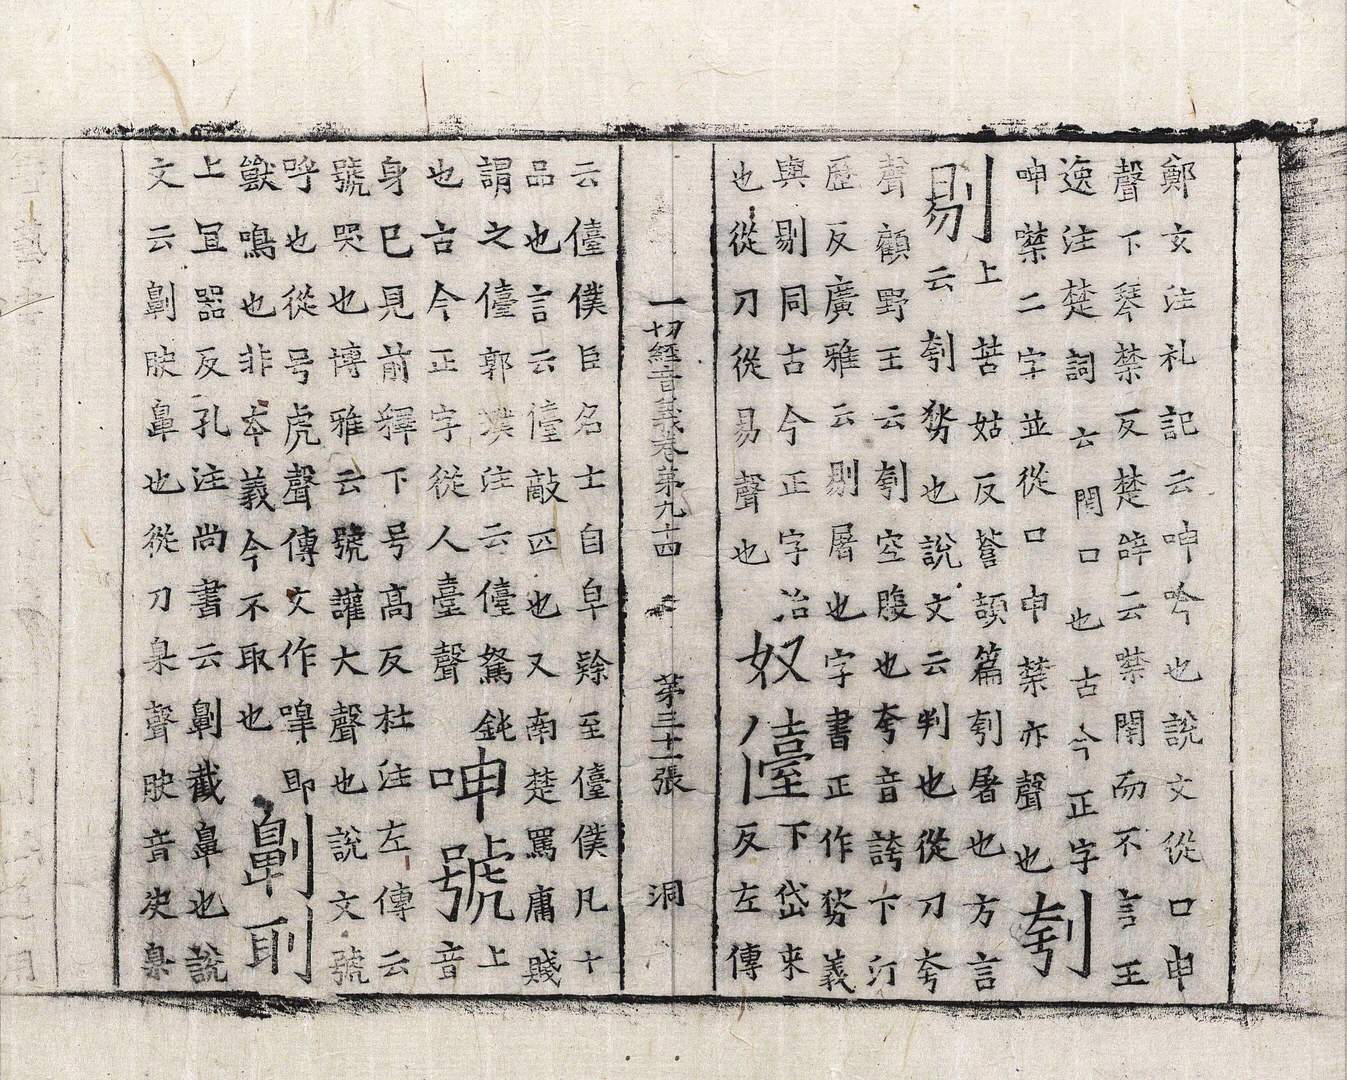 鄭玄注礼記云呻吟也說文從口申
聲下琴禁反楚辝云噤閉而不言王
逸注楚詞云閉口也古今正字
呻噤二字並從口申禁亦聲也刳
剔上苦姑反蒼頡篇刳屠也方言
云刳㔣也說文云判也從刀夸
聲顧野王云刳空腹也夸音誇下汀
歷反廣雅云剔屠也字書正作㔣義
與剔同古今正字治奴儓下岱來
也從刀從易聲也反左傳
一切經音義卷苐九十四 苐三十一張 洞
云儓僕臣名士自皁隸至儓僕凡十
品也言云儓敵匹也又南楚罵庸賤
謂之儓郭璞注云儓駑鈍呻號上
也古今正字從人臺聲音
身已見前釋下号高反杜注左傳云
號哭也博雅云號讙大聲也說文號
呼也從号虎聲傳文作嘷即
獸鳴也非本義今不取也劓刵
上宜器反孔注尚書云劓截鼻也說
文云劓决鼻也從刀臬聲决音决臬